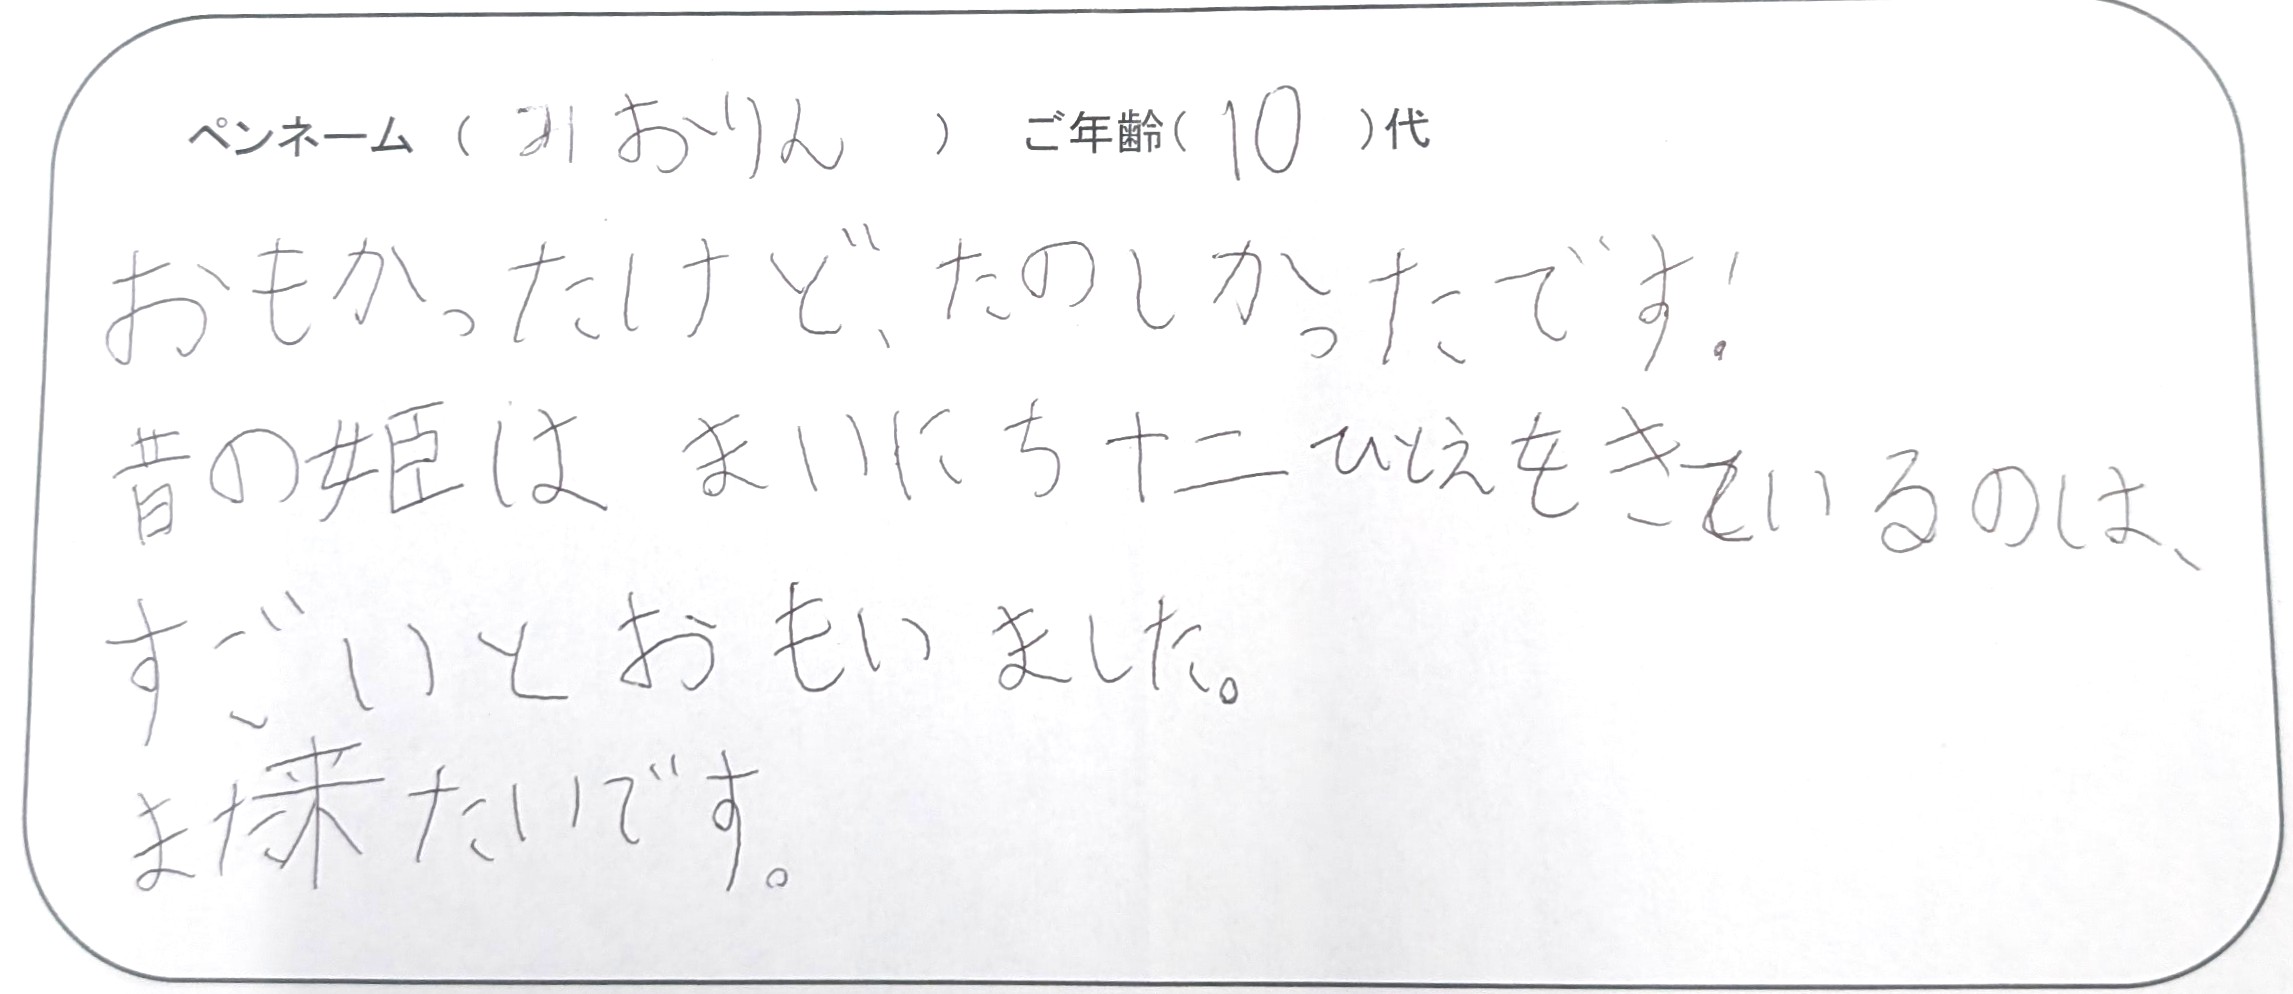 ペンネーム（みおりん）ご年齢（10）代
おもかったけど、たのしかったです！
昔の姫はまいにち十二ひとえをきているのは、
すごいとおもいました。
また来たいです。